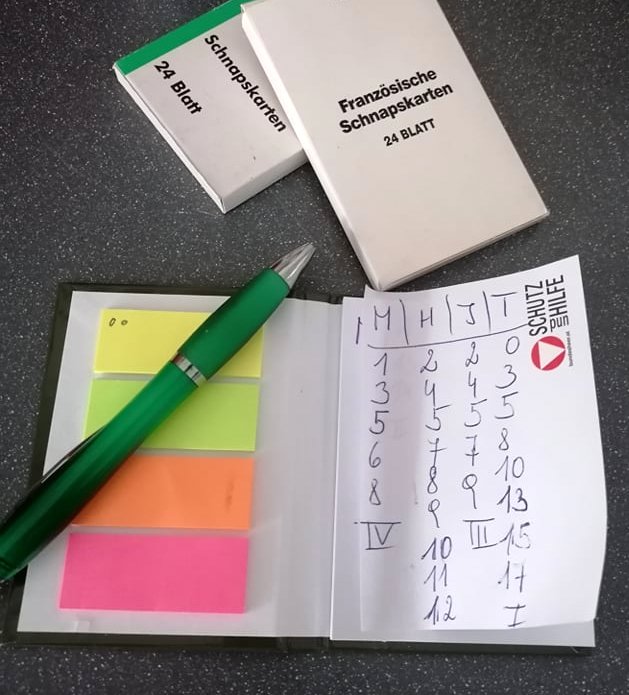 Schnapskarten
24 Blatt
Französische
Schnapskarten
24 BLATT
SCHUTZ
UND HILFE
M | H | J | T
1 2 2 0
3 4 4 3
5 5 5 5
6 7 7 8
8 8 9 10
9 13
IV 10 III 15
11 17
12 I